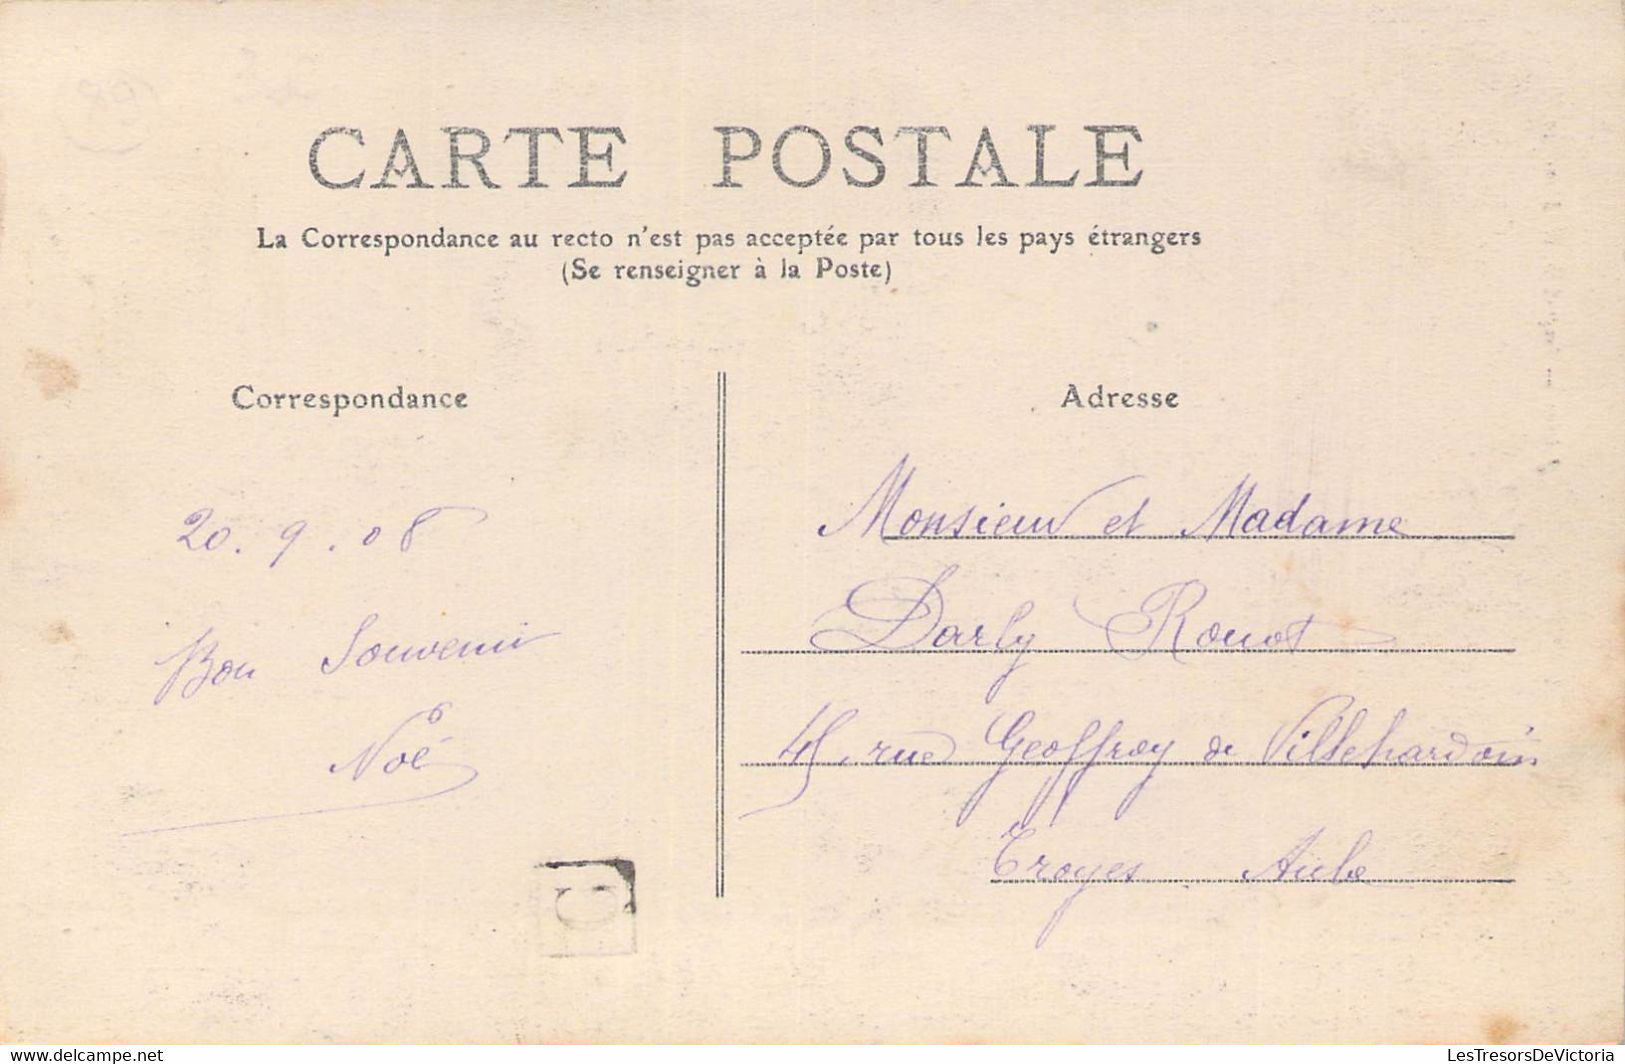 CARTE POSTALE
La Correspondance au recto n'est pas acceptée par tous les pays étrangers
(Se renseigner à la Poste)
Correspondance
20. 9. 08
Bon Souvenir
Noé
Adresse
Monsieur et Madame
Darly Rouot
45, rue Geoffroy de Villehardouin
Troyes. Aube
www.delcampe.net
LesTresorsDeVictoria